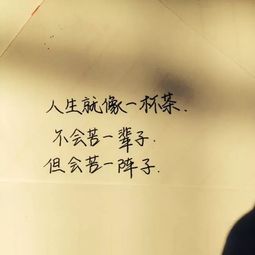 人生就像一杯茶.
不会苦一辈子.
但会苦一阵子.